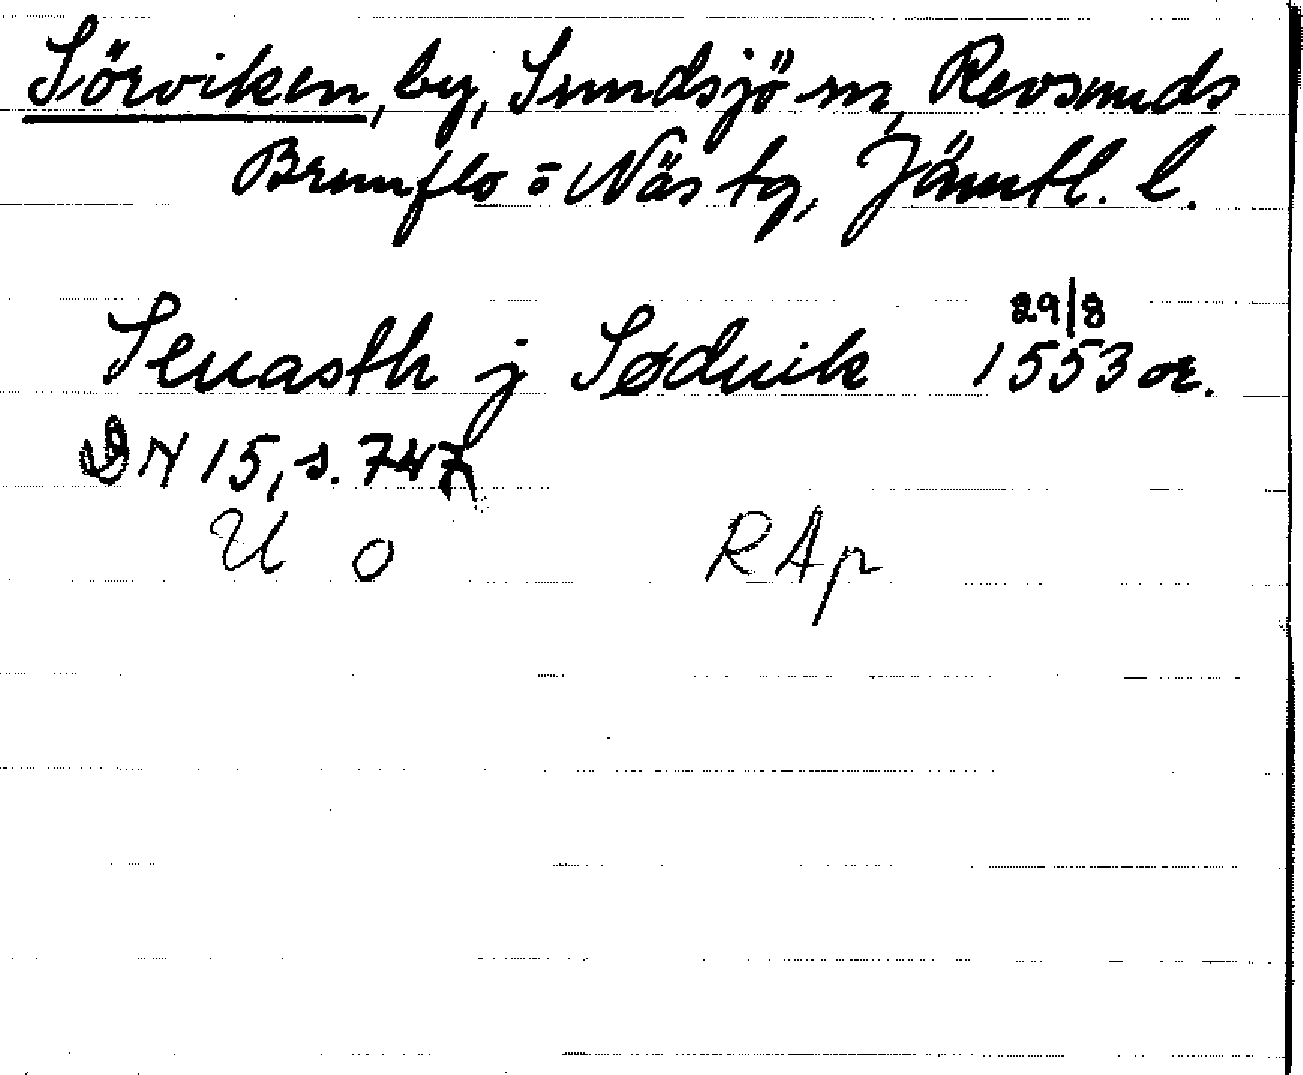 Sörviken, by, Sundsjö sn, Revsunds
Brunflo o Näs tg, Jämtl. l.
29/8
Seuasth j Søduik 1553 or.
DN 15, s. 747
U o RAp